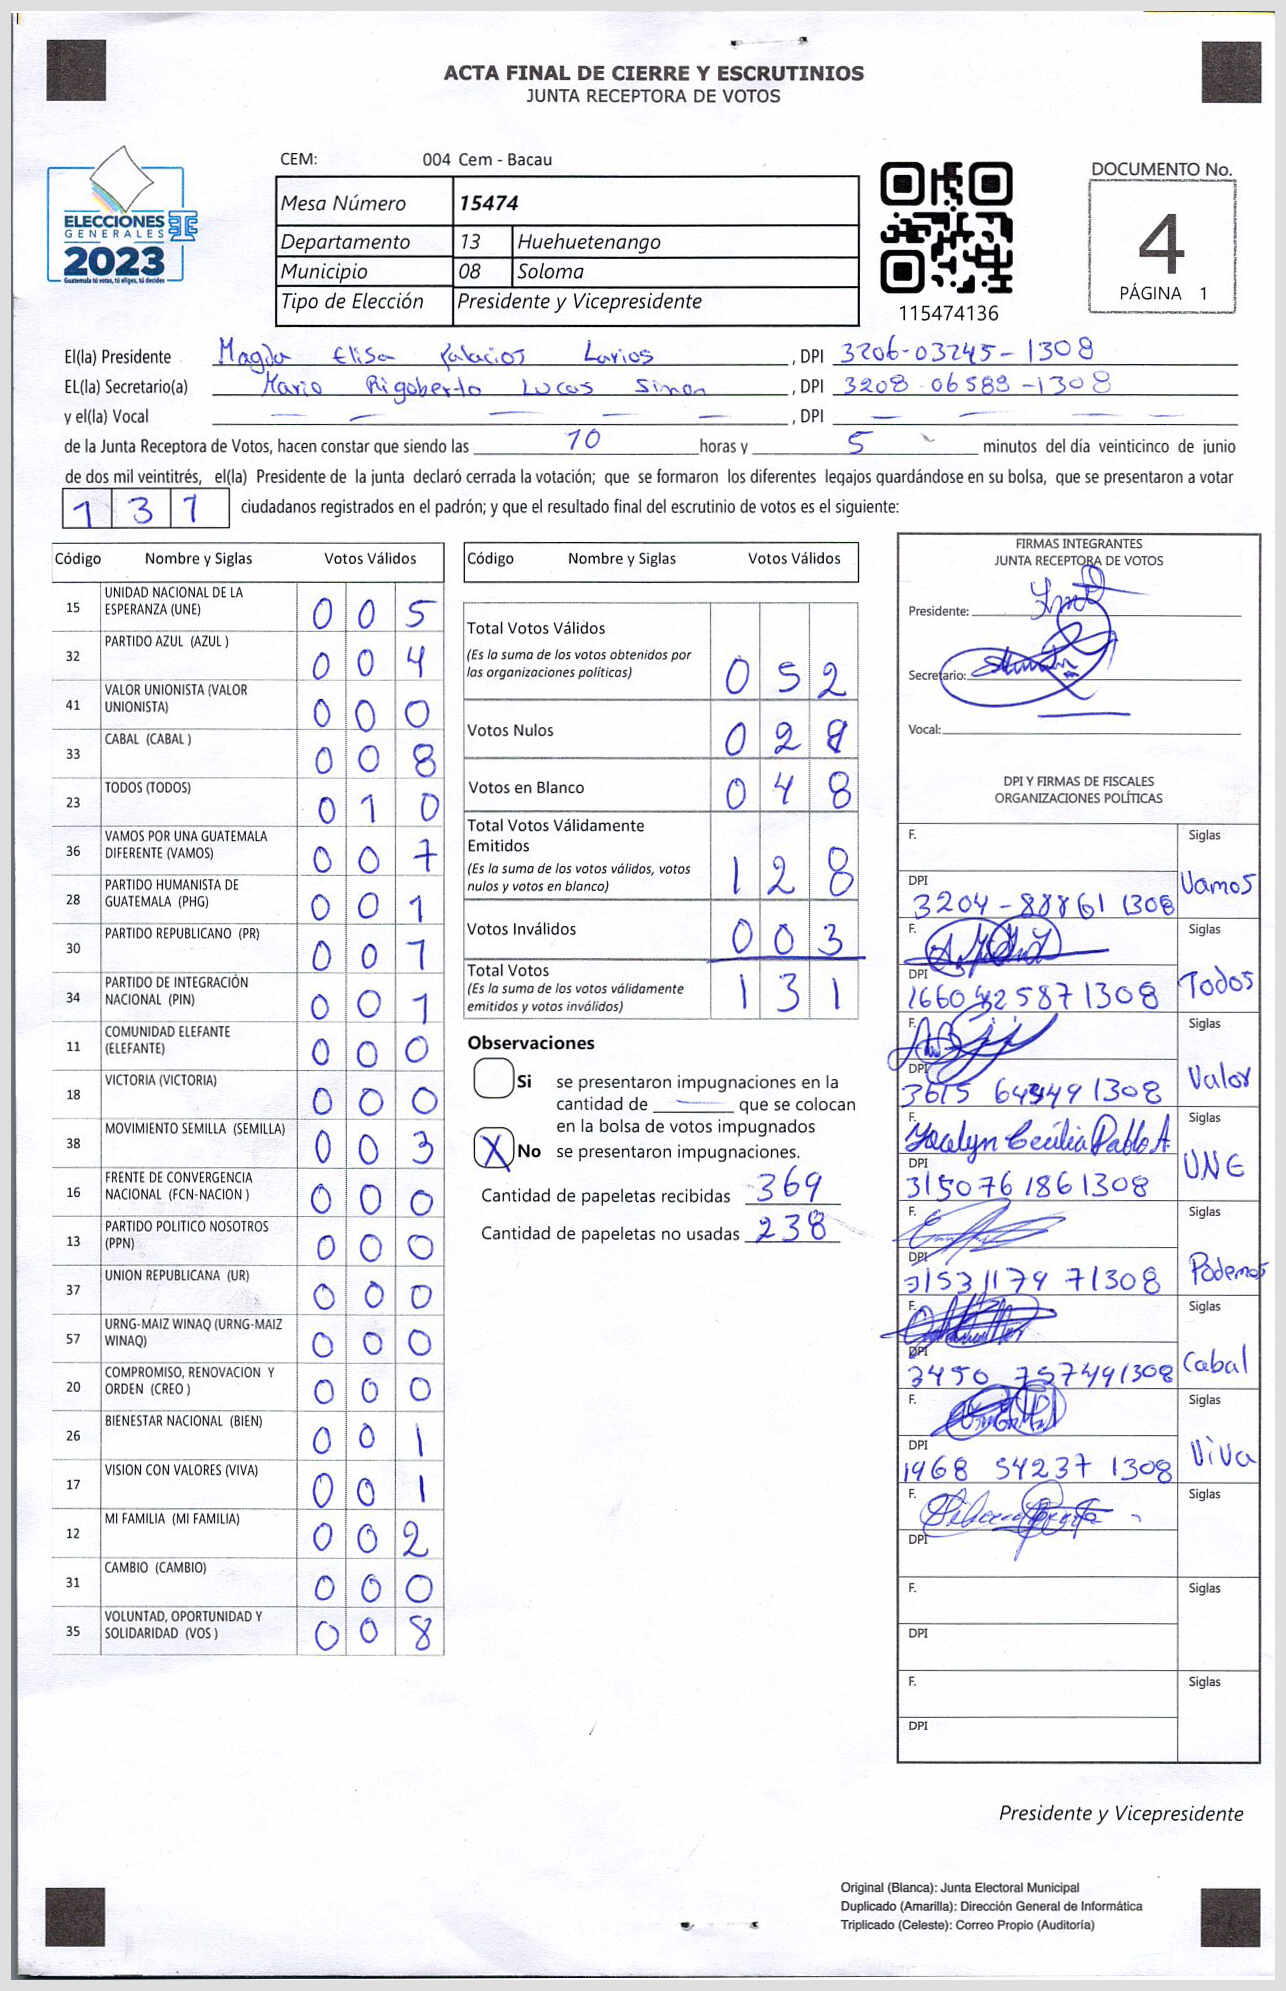 ACTA FINAL DE CIERRE Y ESCRUTINIOS
JUNTA RECEPTORA DE VOTOS
ELECCIONES
GENERALES
2023
Guatemala tú votas, tú eliges, tú decides
CEM: 004 Cem - Bacau
Mesa Número 15474
Departamento 13 Huehuetenango
Municipio 08 Soloma
Tipo de Elección Presidente y Vicepresidente
115474136
DOCUMENTO No.
4
PÁGINA 1
El(la) Presidente Magda Elisa Palacios Larios, DPI 3206-03245-1308
EL(la) Secretario(a) Mario Rigoberto Lucas Simon, DPI 3208 06589-1308
y el(la) Vocal , DPI
de la Junta Receptora de Votos, hacen constar que siendo las 10 horas y 5 minutos del día veinticinco de junio
de dos mil veintitrés, el(la) Presidente de la junta declaró cerrada la votación; que se formaron los diferentes legajos guardándose en su bolsa, que se presentaron a votar
131 ciudadanos registrados en el padrón; y que el resultado final del escrutinio de votos es el siguiente:
Código Nombre y Siglas Votos Válidos
15 UNIDAD NACIONAL DE LA ESPERANZA (UNE) 005
32 PARTIDO AZUL (AZUL ) 004
41 VALOR UNIONISTA (VALOR UNIONISTA) 000
33 CABAL (CABAL ) 008
23 TODOS (TODOS) 010
36 VAMOS POR UNA GUATEMALA DIFERENTE (VAMOS) 007
28 PARTIDO HUMANISTA DE GUATEMALA (PHG) 001
30 PARTIDO REPUBLICANO (PR) 001
34 PARTIDO DE INTEGRACIÓN NACIONAL (PIN) 001
11 COMUNIDAD ELEFANTE (ELEFANTE) 000
18 VICTORIA (VICTORIA) 000
38 MOVIMIENTO SEMILLA (SEMILLA) 003
16 FRENTE DE CONVERGENCIA NACIONAL (FCN-NACION ) 000
13 PARTIDO POLITICO NOSOTROS (PPN) 000
37 UNION REPUBLICANA (UR) 000
57 URNG-MAIZ WINAQ (URNG-MAIZ WINAQ) 000
20 COMPROMISO, RENOVACION Y ORDEN (CREO ) 000
26 BIENESTAR NACIONAL (BIEN) 001
17 VISION CON VALORES (VIVA) 001
12 MI FAMILIA (MI FAMILIA) 002
31 CAMBIO (CAMBIO) 000
35 VOLUNTAD, OPORTUNIDAD Y SOLIDARIDAD (VOS ) 008
Código Nombre y Siglas Votos Válidos
Total Votos Válidos
(Es la suma de los votos obtenidos por
las organizaciones políticas) 052
Votos Nulos 028
Votos en Blanco 048
Total Votos Válidamente
Emitidos
(Es la suma de los votos válidos, votos
nulos y votos en blanco) 128
Votos Inválidos 003
Total Votos
(Es la suma de los votos válidamente
emitidos y votos inválidos) 131
Observaciones
Si se presentaron impugnaciones en la
cantidad de que se colocan
en la bolsa de votos impugnados
X No se presentaron impugnaciones.
Cantidad de papeletas recibidas 369
Cantidad de papeletas no usadas 238
FIRMAS INTEGRANTES
JUNTA RECEPTORA DE VOTOS
Presidente:
Secretario:
Vocal:
DPI Y FIRMAS DE FISCALES
ORGANIZACIONES POLÍTICAS
F. Siglas
DPI 3204-88861 1308 Vamos
F. Siglas
DPI 1308 Todos
F. Siglas
DPI 3615 1308 Valor
F. Jocelyn Cecilia Pablo A. Siglas
DPI 3150761861308 UNE
F. Siglas
DPI 3153117971308 Podemos
F. Siglas
DPI 3450 757491308 Cabal
F. Siglas
DPI 1968 54237 1308 Viva
F. Siglas
DPI
F. Siglas
DPI
F. Siglas
DPI
Presidente y Vicepresidente
Original (Blanca): Junta Electoral Municipal
Duplicado (Amarilla): Dirección General de Informática
Triplicado (Celeste): Correo Propio (Auditoría)